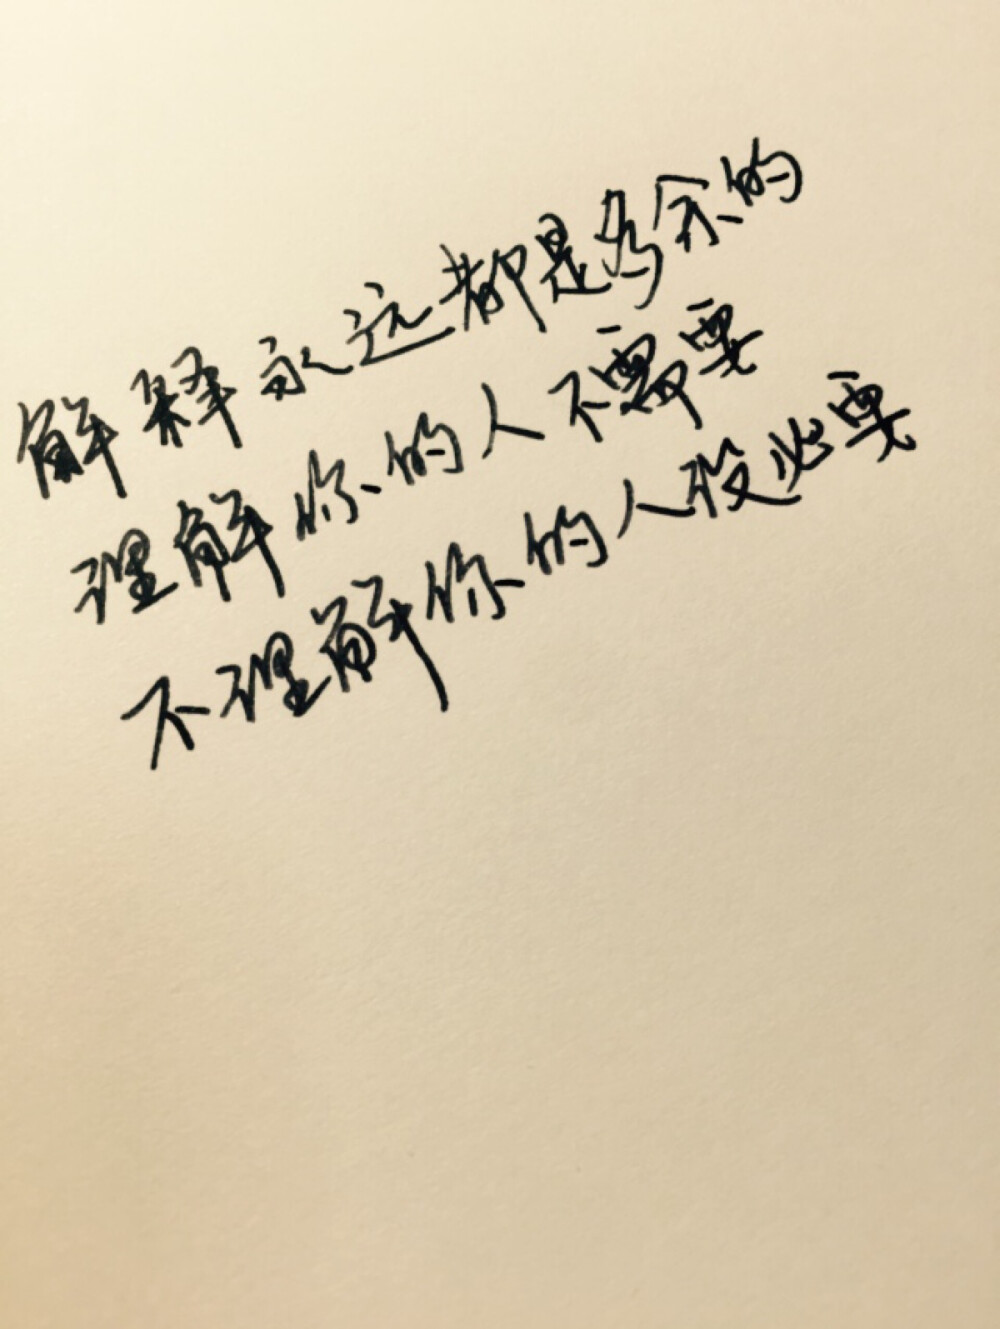 解释永远都是多余的
理解你的人不需要
不理解你的人没必要